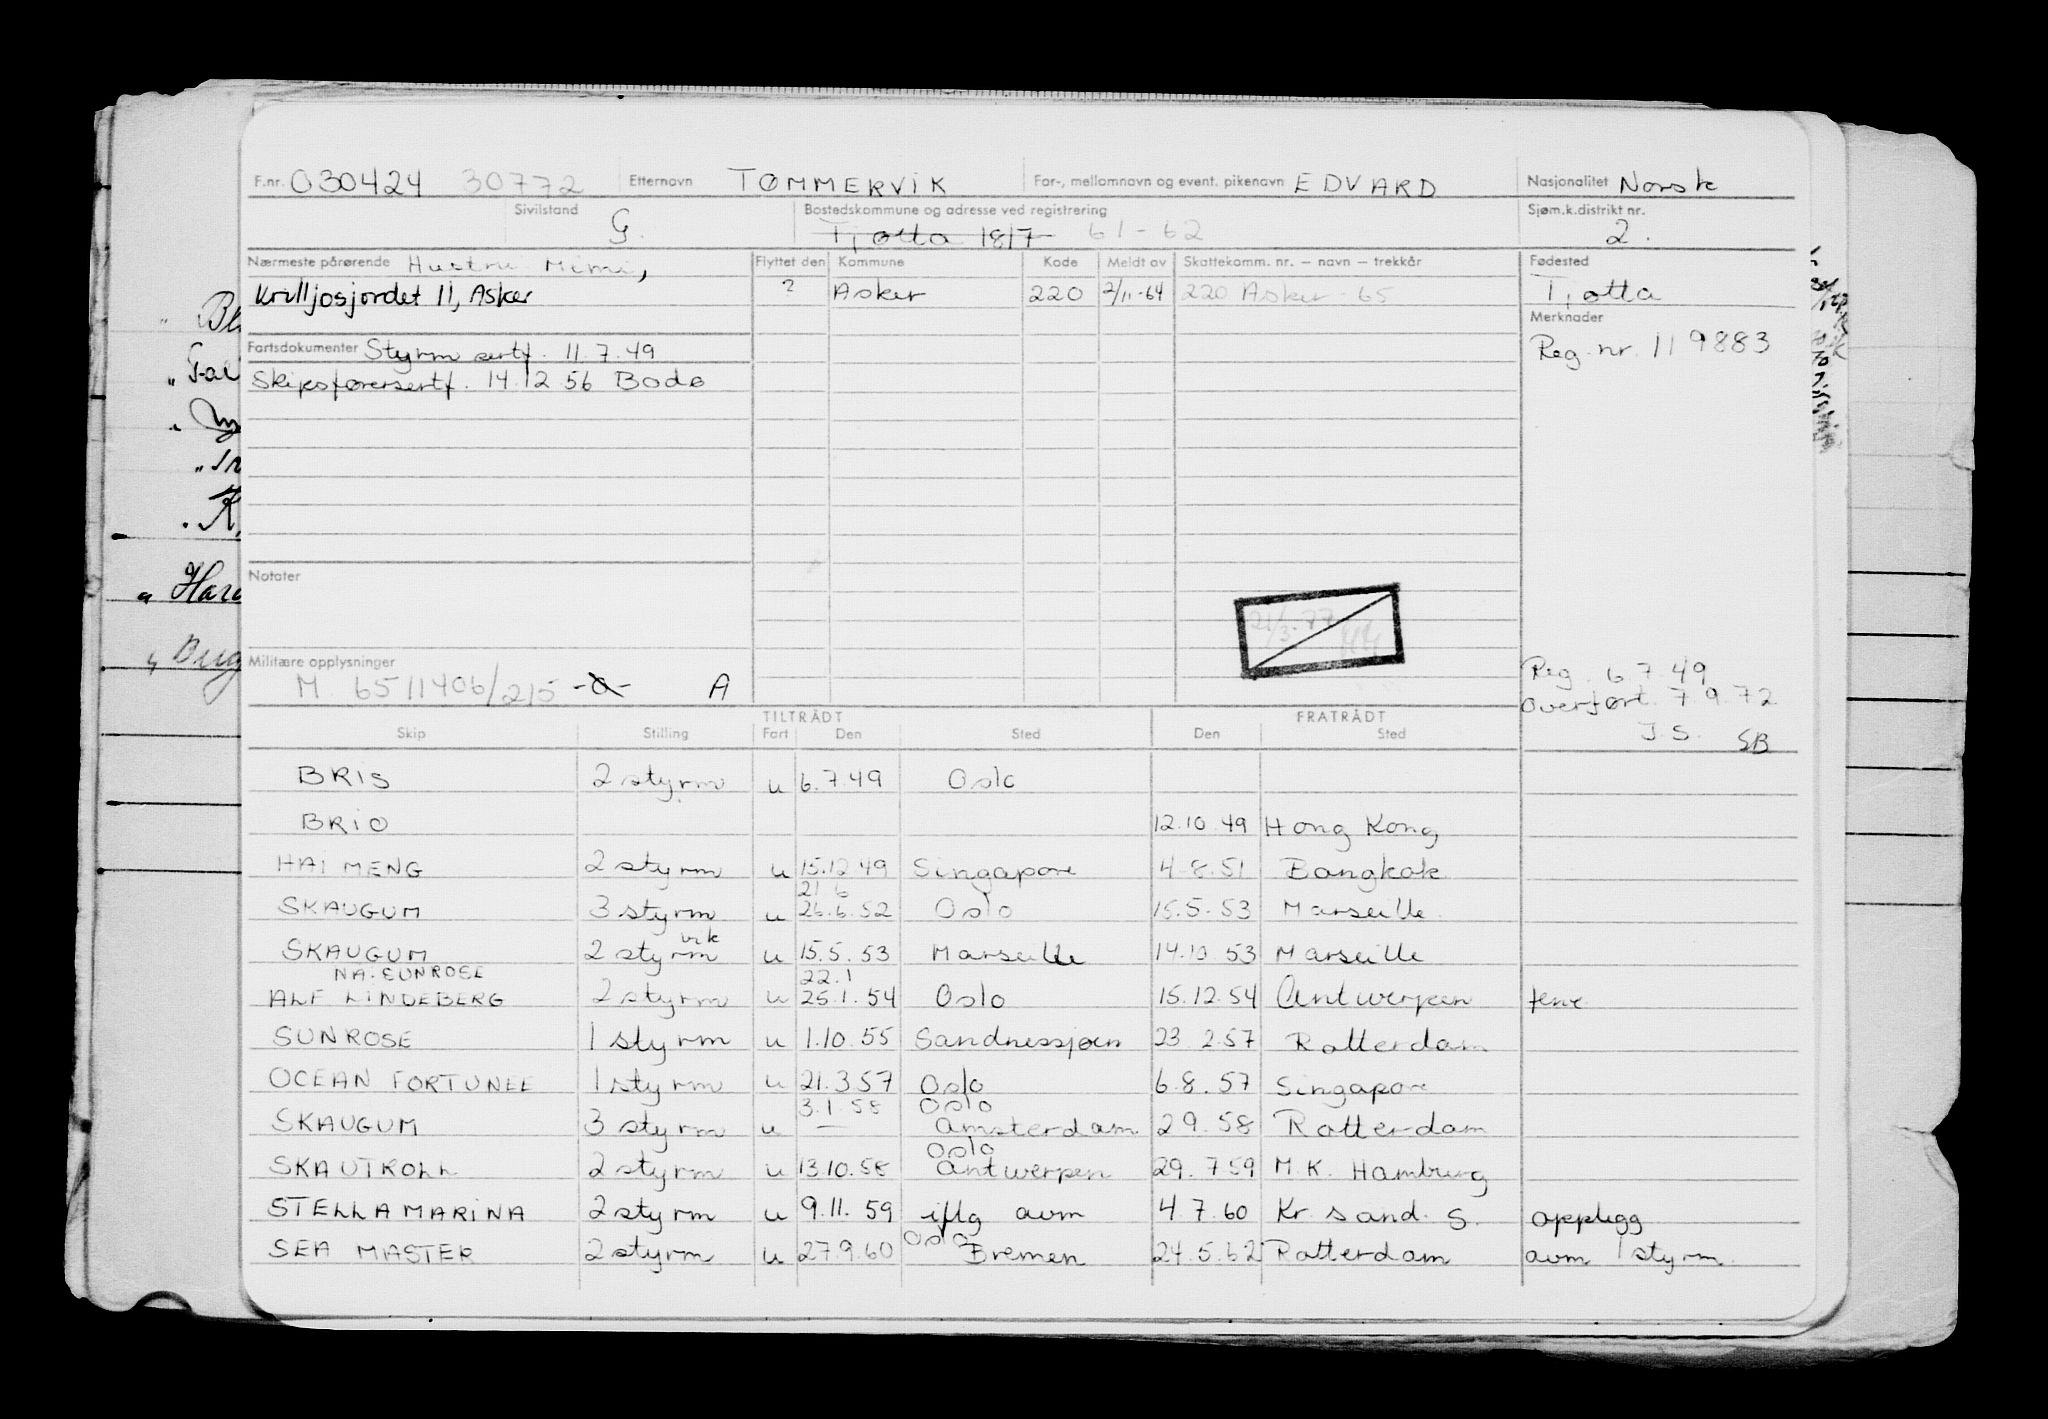 F.nr. 030424 30772 Etternavn TØMMERVIK For-, mellomnavn og event. pikenavn EDVARD Nasjonalitet Norsk
Sivilstand G. Bostedskommune og adresse ved registrering Tjøtta 1817 61-62 Sjøm.k.distrikt nr. 2.
Nærmeste pårørende Hustru Mimi, Flyttet den Kommune Kode Meldt av Skattekomm. nr. – navn – trekkår Fødested
Krilljosjordet 11, Asker ? Asker 220 2/11-64 220 Asker 65 Tjøtta
Merknader
Fartsdokumenter Styrm sertf. 11.7.49 Reg. nr. 119883
Skipsførersertf. 14.12 56 Bodø
Notater
21/3.77
Militære opplysninger
M 6511406/215 -a- A
Reg. 6 7 49
overført. 7.9.72
J.S. SB
TILTRÅDT FRATRÅDT
Skip Stilling Fart Den Sted Den Sted
BRIS 2 styrm u 6.7.49 Oslo
BRIO 12.10.49 Hong Kong
HAI MENG 2 styrm u 15.12 49 Singapore 4.8.51 Bangkok
21 6
SKAUGUM 3 styrm u 26.6.52 Oslo 15.5.53 Marseille
vik
SKAUGUM 2 styrm u 15.5.53 Marseille 14.10 53 Marseille
NA. SUNROSE 22.1
ALF LINDEBERG 2 styrm u 25.1.54 Oslo 15.12.54 Antwerpen ferie
SUNROSE 1 styrm u 1.10.55 Sandnessjøen 23 2.57 Rotterdam
OCEAN FORTUNEE 1 styrm u 21.3.57 Oslo 6.8.57 Singapore
3.1.58 Oslo
SKAUGUM 3 styrm u — Amsterdam 2 9.58 Rotterdam
Oslo
SKAUTROLL 2 styrm u 13.10.58 Antwerpen 29.7 59 M.K. Hamburg
STELLA MARINA 2 styrm u 9.11.59 iflg avm 4.7.60 Kr. sand. S. opplegg
Oslo
SEA MASTER 2 styrm u 27.9.60 Bremen 24.5.62 Rotterdam avm 1 styrm.